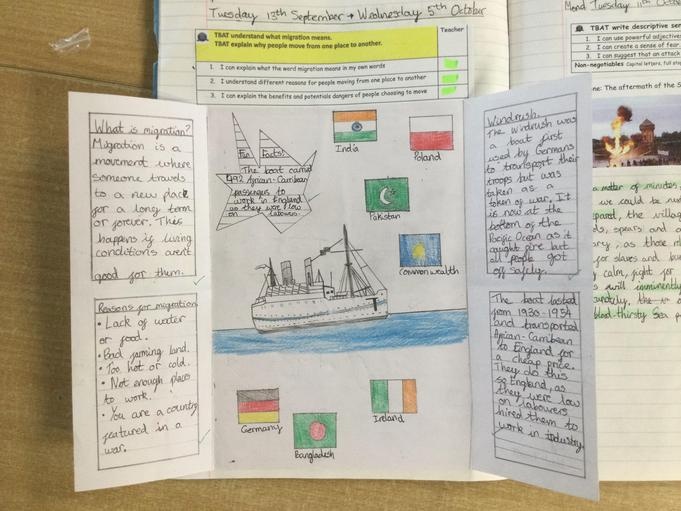 Tuesday 13th September → Wednesday 5th October
TBAT understand what migration means.
TBAT explain why people move from one place to another.
Teacher
1. I can explain what the word migration means in my own words
2. I understand different reasons for people moving from one place to another
3. I can explain the benefits and potentials dangers of people choosing to move
What is migration?
Migration is a
movement where
someone travels
to a new place
for a long term
or forever. This
happens if living
conditions arent
good for them.
Reasons for migration
• Lack of water
or food.
• Bad farming land.
• Too hot or cold.
• Not enough places
to work.
• You are a country
featured in a
war.
Fun Facts:
The boat carried
492 African-Carribean
passengers to
work in England
as they were low
on labourers.
India
Poland
Pakistan
Commonwealth
Germany
Bangladesh
Ireland
Windrush.
The windrush was
a boat first
used by Germans
to transport their
troops but was
taken as a
token of war. It
is now at the
bottom of the
Pacific Ocean as it
caught fire but
all people got
off safely.
The boat lasted
from 1930-1954
and transported
African-Carribean
to England for
a cheap price.
They do this
so England, as
they were low
on labourers
hired them to
work in industry.
Mond Tuesday 11th
TBAT write descriptive sen
1. I can use powerful adjective
2. I can create a sense of fear.
3. I can suggest that an attack
Non-negotiables Capital letters, full stop
ne: The aftermath of the S
a matter of minutes,
we could be
the villag
ds, spears and
as those
for slaves and
calm, fight for
will imminently
blood thirsty Sax